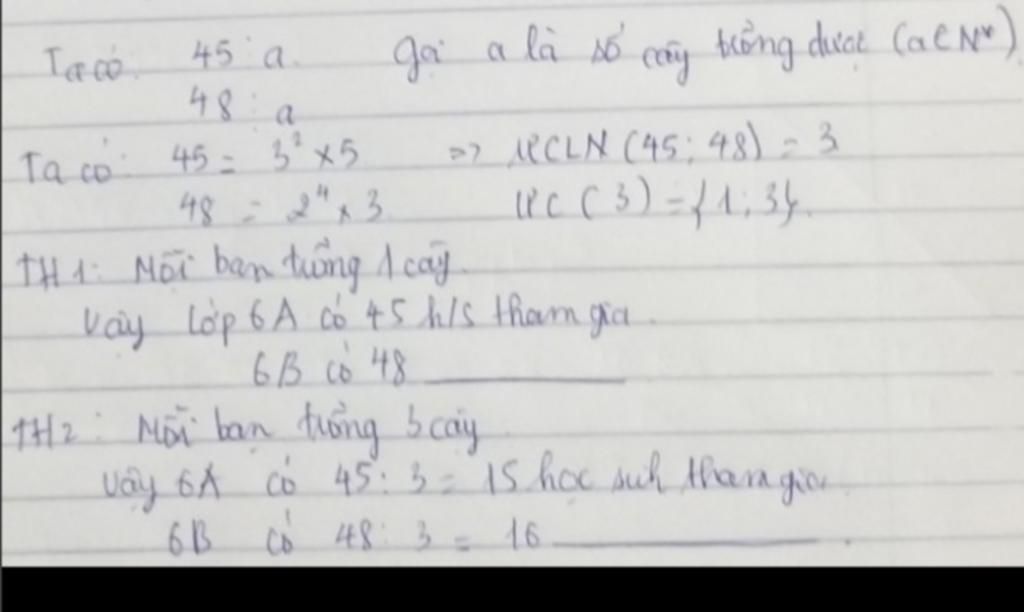 Ta có: 45 ⋮ a. Gọi a là số cây trồng được (a ∈ N*)
48 ⋮ a
Ta có: 45 = 3² × 5 => ƯCLN (45; 48) = 3
48 = 2⁴ × 3 ƯC (3) = {1; 3}.
TH1: Mỗi bạn trồng 1 cây.
Vậy lớp 6A có 45 h/s tham gia.
6B có 48 ————
TH2: Mỗi bạn trồng 3 cây
Vậy 6A có 45 : 3 = 15 học sinh tham gia.
6B có 48 : 3 = 16 ————.